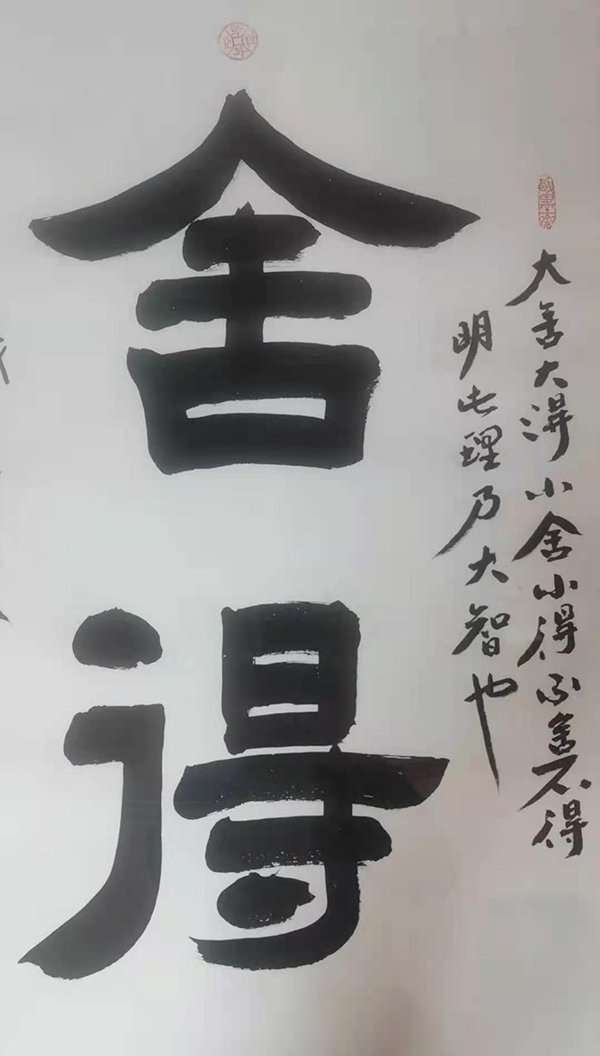 大舍大得小舍小得不舍不得
明此理乃大智也
舍得